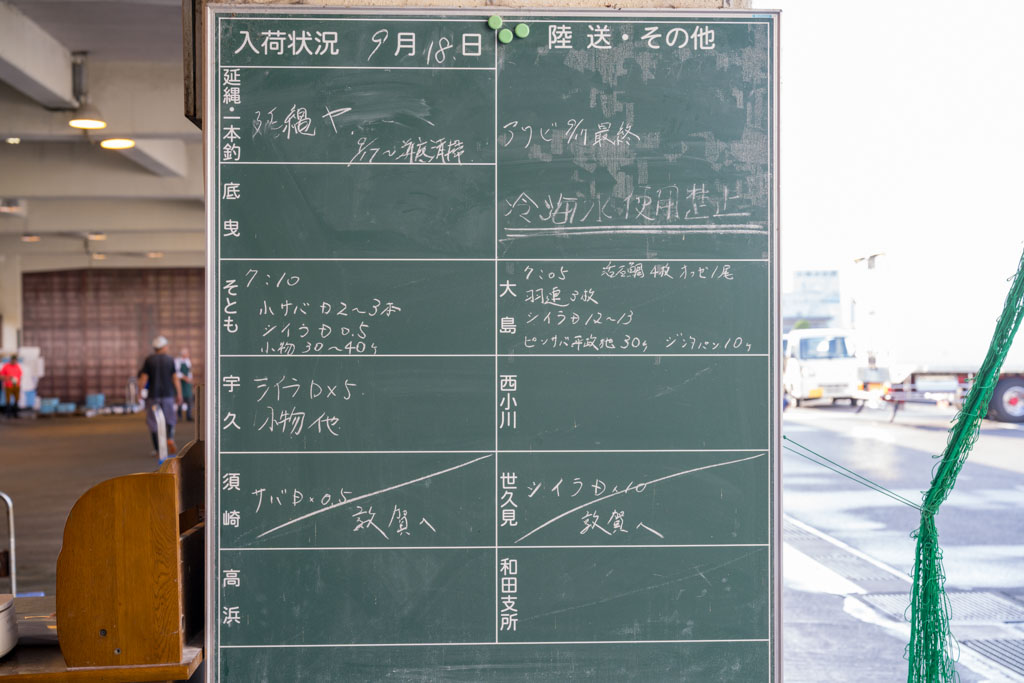 入荷状況 9月18日
陸送・その他
延縄・一本釣
延縄ヤ
9/17〜海底清掃
アワビ 9/11最終
冷海水使用禁止
底曳
そとも
7:10
小サバ 2〜3本
シイラ 0.5
小物 30〜40
大島
7:05 活石鯛4枚 オコゼ1尾
羽遠3枚
シイラ 12〜13
ピンサバ 平政他 30 10
宇久
シイラD×5
小物他
西小川
須崎
サバD×0.5
敦賀へ
世久見
シイラD×10
敦賀へ
高浜
和田支所